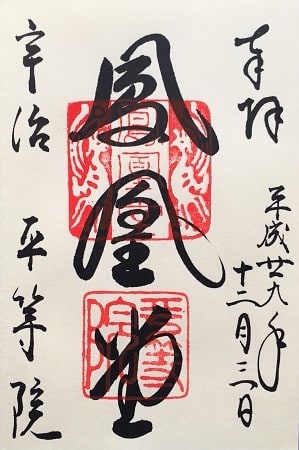 奉拝
平成廿九年
十二月三日
鳳凰堂
宇治 平等院